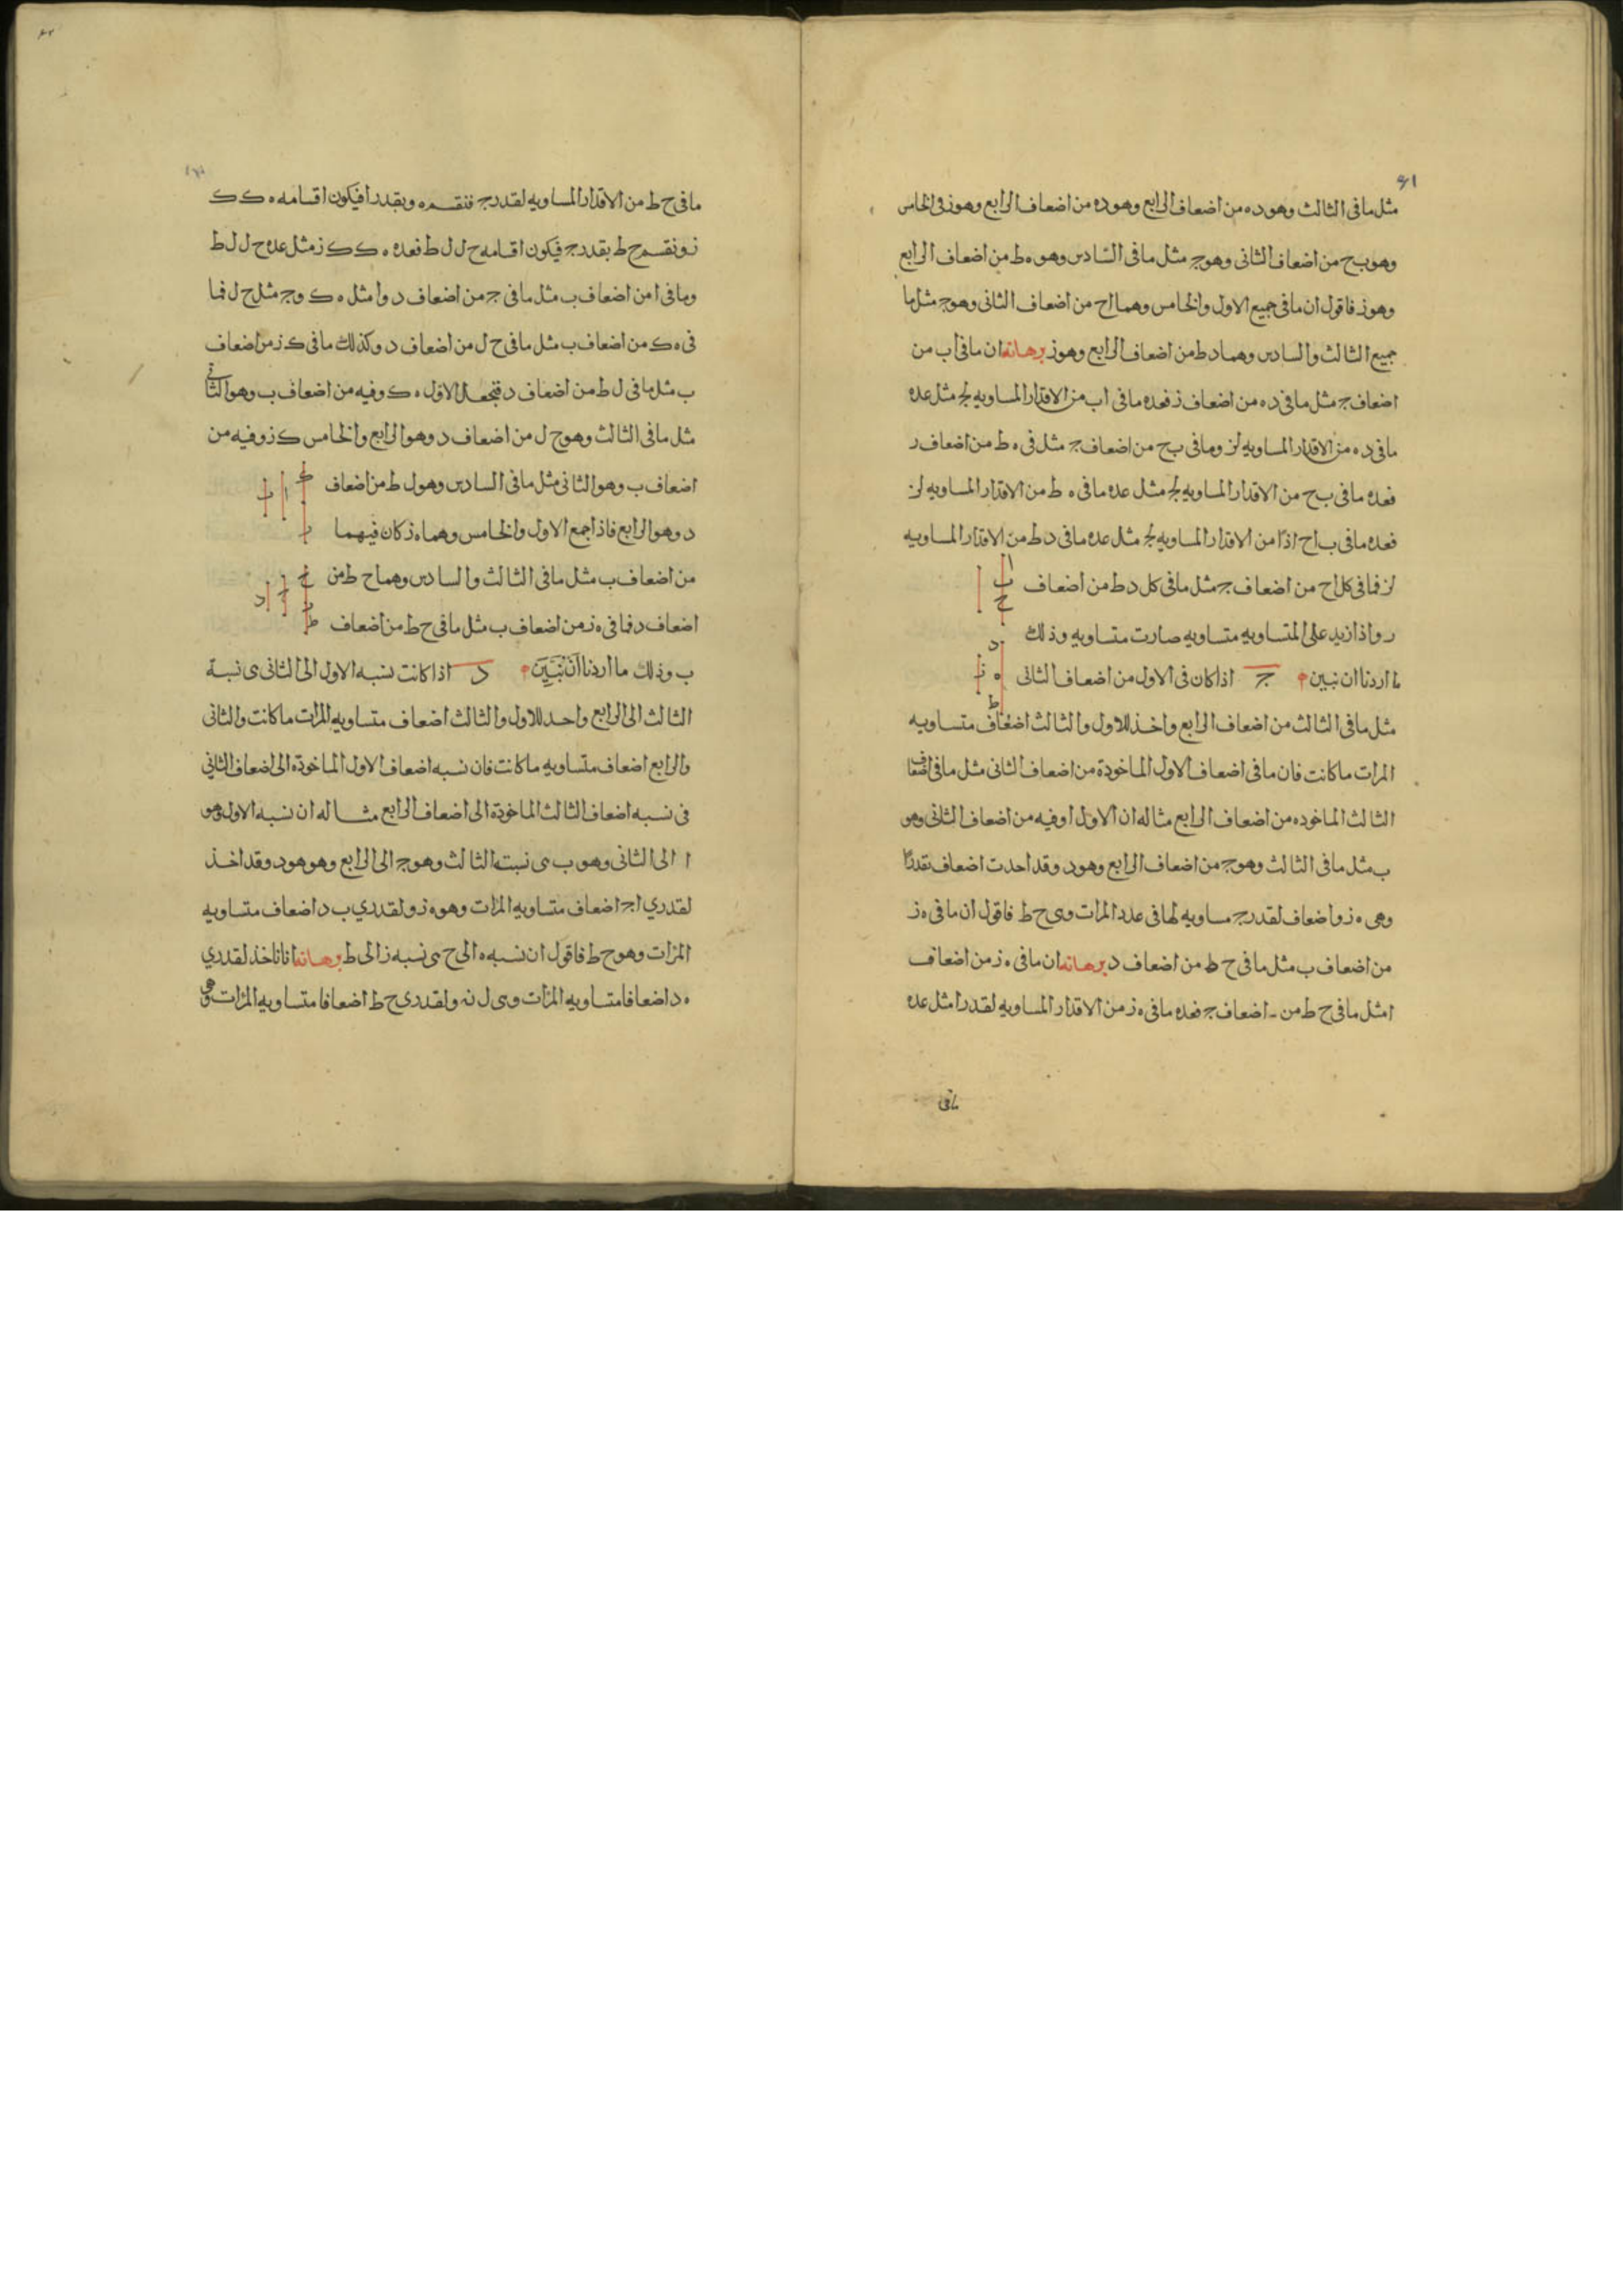 ٤١
مثل ما فى الثالث وهو ده من اضعاف الرابع وهو ده من اضعاف الرابع وهو ز فى الخامس
وهو بح من اضعاف الثانى وهو ج مثل ما فى السادس وهو ه ط من اضعاف الرابع
وهو ز فاقول ان ما فى جميع الاول والخامس وهما اح من اضعاف الثانى وهو ج مثل ما
جميع الثالث والسادس وهما د ط من اضعاف الرابع وهو ز برهانه ان ما فى اب من
اضعاف ج مثل ما فى د ه من اضعاف ز فعده ما فى اب من الاقدار المساويه لج مثل عده
ما فى د ه من الاقدار المساويه لز وما فى بح من اضعاف ج مثل فى ه ط من اضعاف ر
فعده ما فى بح من الاقدار المساويه لج مثل عده ما فى ه ط من الاقدار المساويه لز
فعده ما فى ب اح اذًا من الاقدار المساويه لج مثل عده ما فى د ط من الاقدار المساويه
لز فما فى كل اح من اضعاف ج مثل ما فى كل د ط من اضعاف
ر واذا زيد على المتساويه متساويه صارت متساويه وذلك
ما اردنا ان نبين ج اذا كان فى الاول من اضعاف الثانى
مثل ما فى الثالث من اضعاف الرابع واخذ للاول والثالث اضعاف متساويه
المرات ما كانت فان ما فى اضعاف الاول الماخوذة من اضعاف الثانى مثل ما فى اضعاف
الثالث الماخوده من اضعاف الرابع مثاله ان الاول ا وفيه من اضعاف الثانى وهو
ب مثل ما فى الثالث وهو ج من اضعاف الرابع وهو د وقد احدت اضعاف بقدر ا
وهى ه ز واضعاف لقدر ج مساويه لها فى عدد المرات وهى ح ط فاقول ان ما فى ه ز
من اضعاف ب مثل ما فى ح ط من اضعاف د برهانه ان ما فى ه ز من اضعاف
ا مثل ما فى ح ط من اضعاف ج فعده ما فى ه ز من الاقدار المساويه لقدر ا مثل عده
ما فى
ما فى ح ط من الاقدار المساويه لقدر ج فنقسم ه ز بقدر ا فيكون اقسامه ه ك ك
ز ونقسم ح ط بقدر ج فيكون اقسامه ح ل ل ط فعده ه ك ك ز مثل عده ح ل ل ط
وما فى ا من اضعاف ب مثل ما فى ج من اضعاف د وا مثل ه ك وج مثل ح ل فما
فى ه ك من اضعاف ب مثل ما فى ح ل من اضعاف د وكذلك ما فى ك ز من اضعاف
ب مثل ما فى ل ط من اضعاف د فنجعل الاول ه ك وفيه من اضعاف ب وهو الثانى
مثل ما فى الثالث وهو ح ل من اضعاف د وهو الرابع والخامس ك ز وفيه من
اضعاف ب وهو الثانى مثل ما فى السادس وهو ل ط من اضعاف
د وهو الرابع فاذا جمع الاول والخامس وهما ه ز كان فيهما
من اضعاف ب مثل ما فى الثالث والسادس وهما ح ط من
اضعاف د فما فى ه ز من اضعاف ب مثل ما فى ح ط من اضعاف
ب وذلك ما اردنا اَن نُبَيِّن د اذا كانت نسبه الاول الى الثانى ى نسبة
الثالث الى الرابع واحد للاول والثالث اضعاف متساويه المرات ما كانت والثانى
والرابع اضعاف متساويه ما كانت فان نسبه اضعاف الاول الماخوذه الى اضعاف الثانى
فى نسبه اضعاف الثالث الماخوذة الى اضعاف الرابع مثاله ان نسبه الاول وهو
ا الى الثانى وهو ب ى نسبته الثالث وهو ج الى الرابع وهو هو د وقد اخذ
لقدري ا ج اضعاف متساويه المرات وهو ه ز ولقدري ب د اضعاف متساويه
المرات وهو ح ط فاقول ان نسبه ه الى ح ى نسبه ز الى ط برهانه انا ناخذ لقدري
ه د اضعافا متساويه المرات وى ل نه ولقدرى ح ط اضعافا متساويه المرات وهى